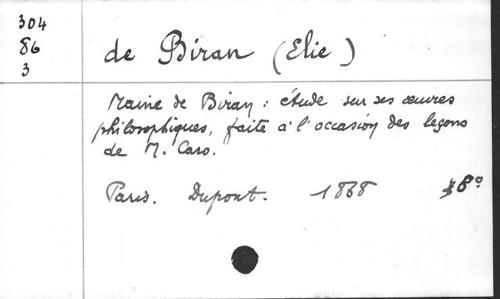 304
86
3
de Biran (Elie)
Maine de Biran : étude sur ses œuvres
philosophiques, faite à l'occasion des leçons
de M. Caro.
Paris. Dupont. 1868 8°